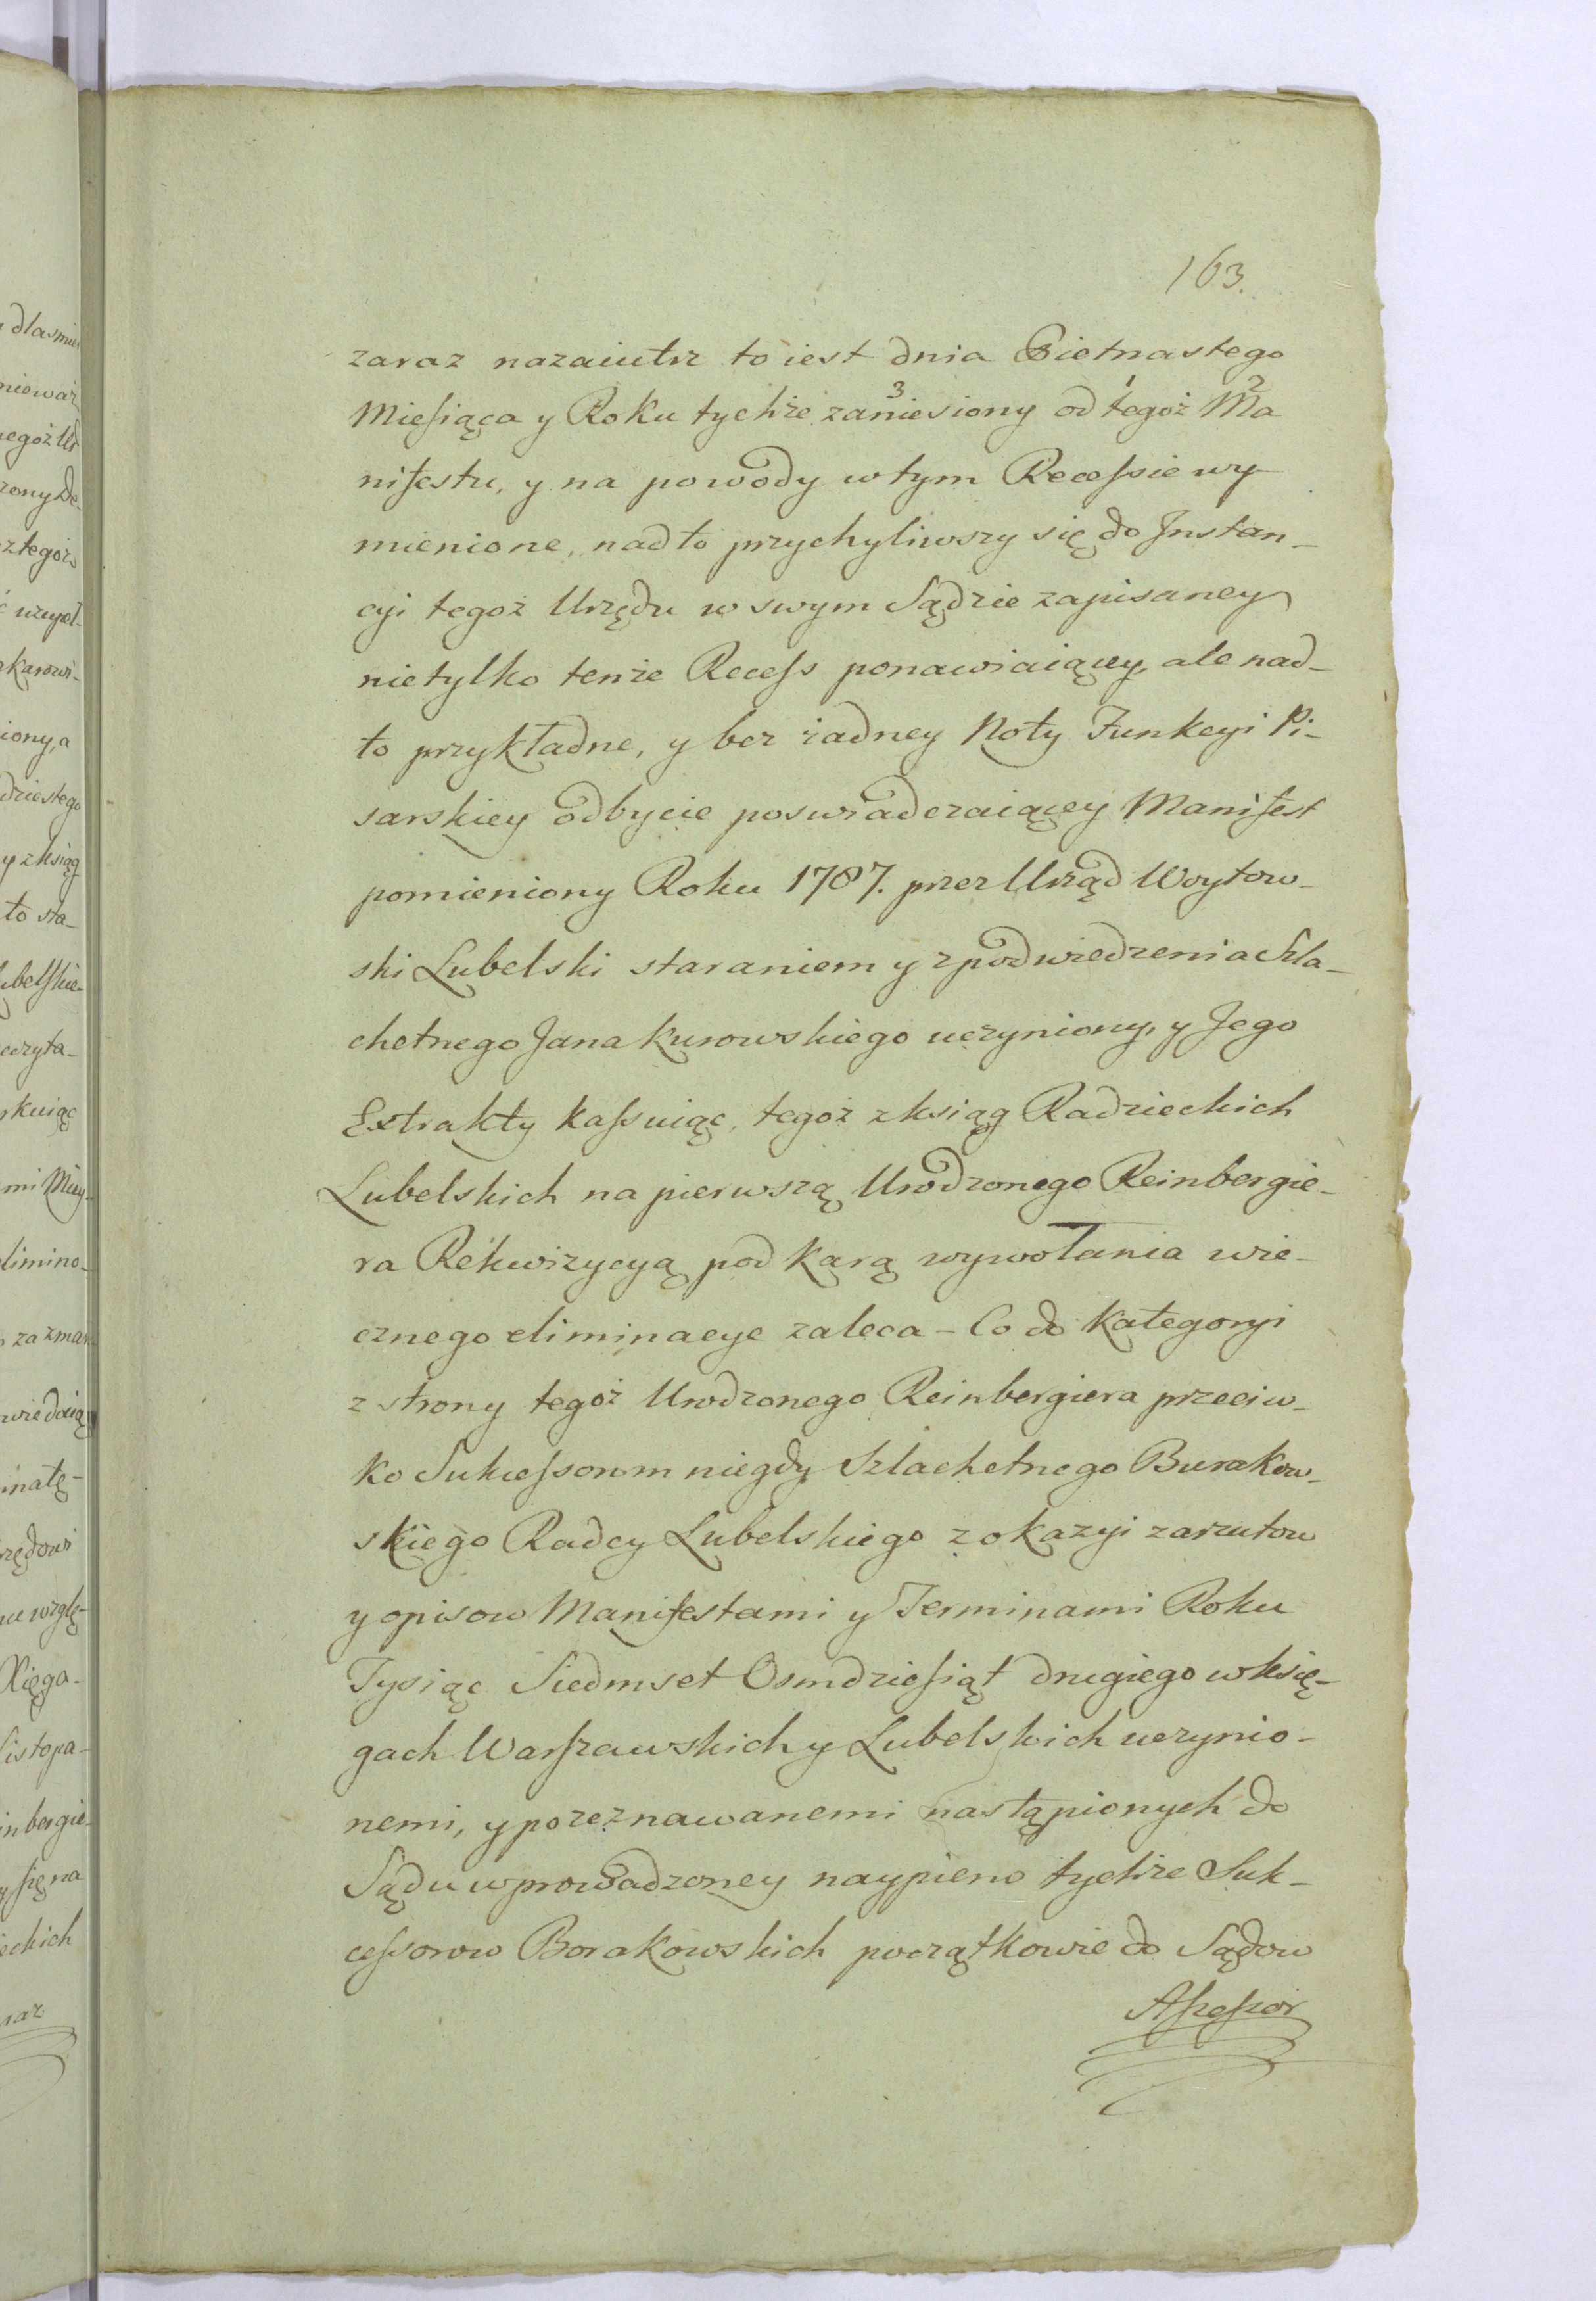 163.
zaraz nazaiutrz to iest dnia Pietnastego
3 1 2
Miesiąca y Roku tychże zaniesiony od tegoż Ma
nifestu, y na powody w tym Recessie wy-
mienione, nadto przychyliwszy się do Jnstan_
cyi tegoż Urzędu w swym Sądzie zapisaney
nietylko tenże Recess ponawiaiącey, ale nad_
to przykładne, y bez żadney Noty Funkcyi Pi_
sarskiey odbycie poswiadczaiącey Manifest
pomieniony Roku 1787. przez Urząd Woytow_
ski Lubelski staraniem y zpodwiedzenia Szla_
chetnego Jana Kurowskiego uczyniony, y Jego
Extrakty kassuiąc, tegoż z ksiąg Radzieckich
Lubelskich na pierwszą Urodzonego Reinbergie_
ra Rekwizycyą pod karą wywołania wie_
cznego eliminacye zaleca - Co do kategoryi
z strony tegoż Urodzonego Reinbergiera przeciw_
ko Sukcessorom niegdy Szlachetnego Burakow_
skiego Radcy Lubelskiego z okazyi zarzutow
y opisow Manifestami y Terminami Roku
Tysiąc Siedmset Osmdziesiąt drugiego w księ_
gach Warszawskich y Lubelskich uczynio_
nemi, y porcznawanemi nastąpionych do
Sądu wprowadzoney naypierw tychże Suk_
cessorow Borakowskich początkowie do Sądow
Assessor
dlasmie
nieważ
negoż Ur
rony De_
z tegoż
uzupeł_
karowi_
iony, a
dziestego
y z ksiąg
to sta_
ubelskie_
czyta_
skuiąc
mi Miey_
limino_
za zmar_
wiedaią
natę_
rzędowi
wzglę_
Xięga_
Listopa_
inbergie_
się na
eckich
raz